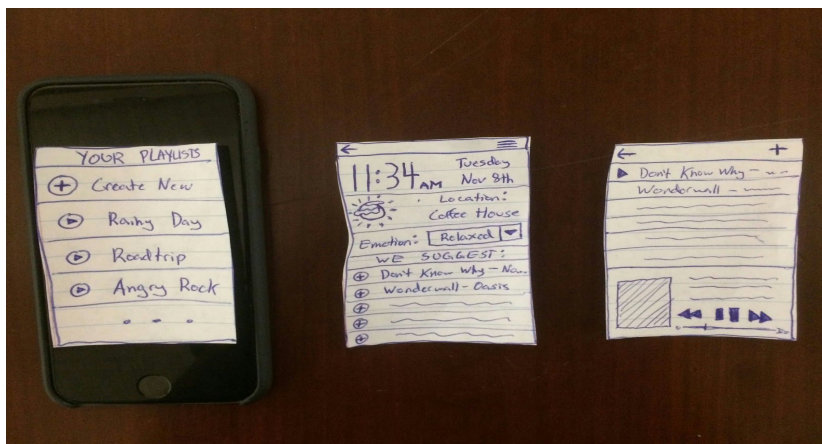 YOUR PLAYLISTS
Create New
Rainy Day
Roadtrip
Angry Rock
11:34 AM
Tuesday
Nov 8th
Location:
Coffee House
Emotion: Relaxed
WE SUGGEST:
Don't Know Why - No..
Wonderwall - Oasis
Don't Know Why -
Wonderwall -